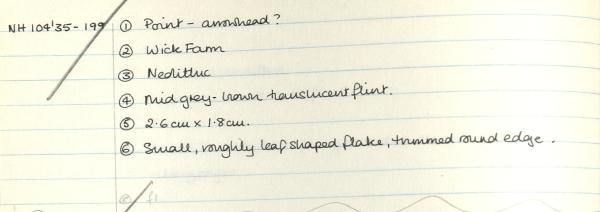 NH 104'35-199 ① Point - arrowhead?
② Wick Farm
③ Neolithic
④ Mid grey-brown translucent flint.
⑤ 2.6cm x 1.8cm.
⑥ Small, roughly leaf shaped flake, trimmed round edge.